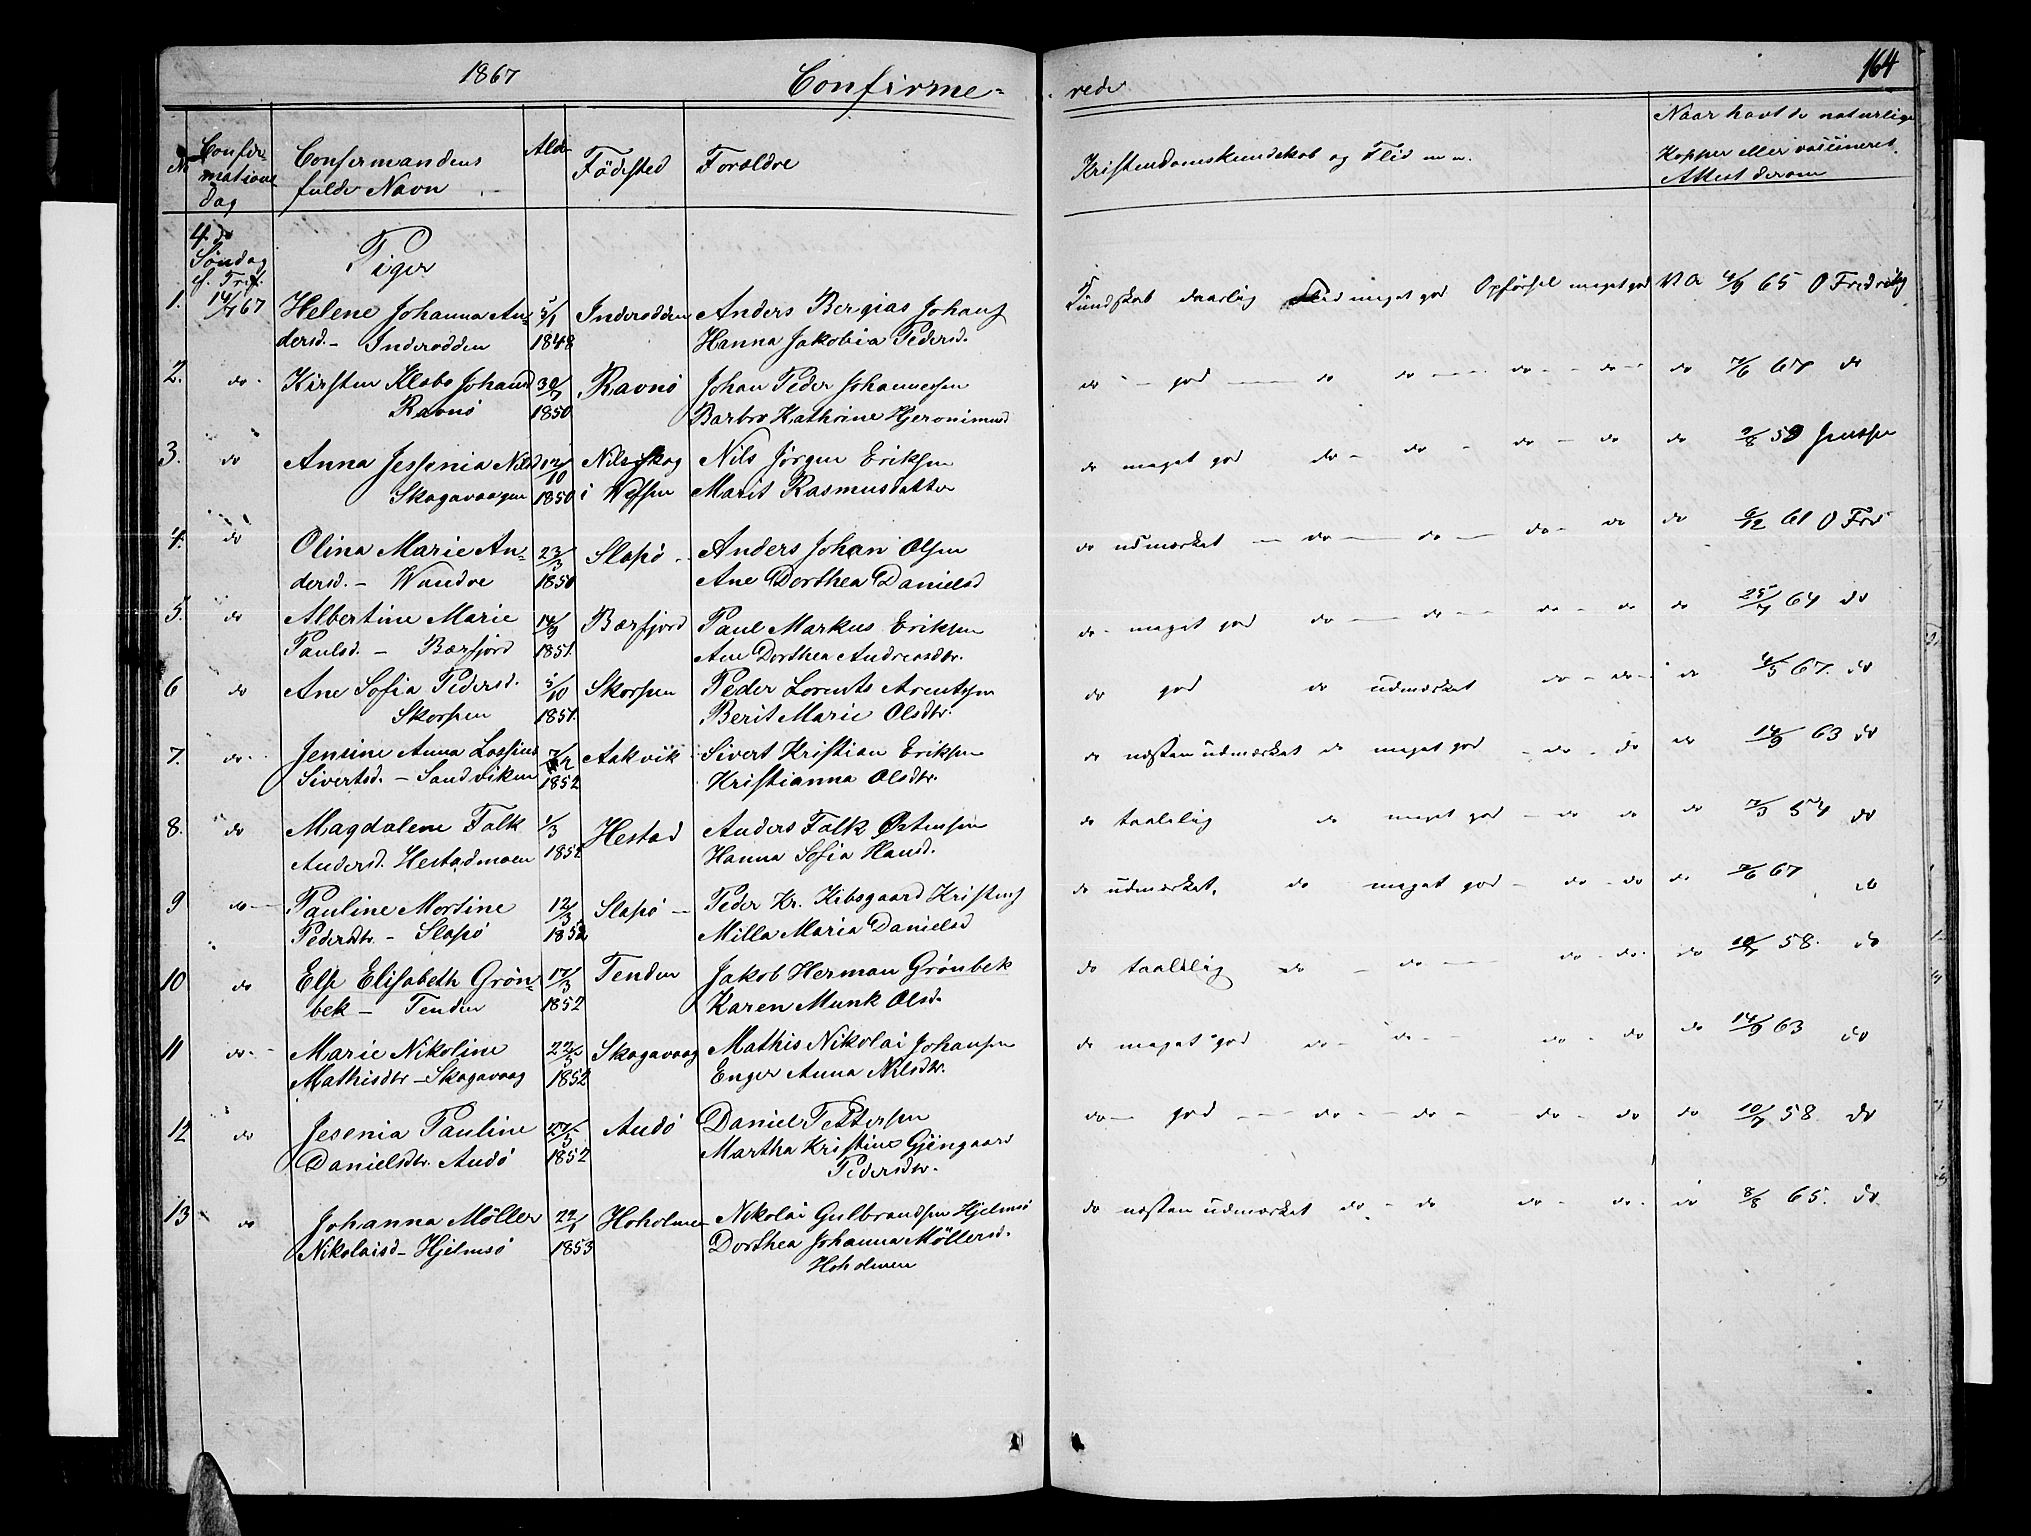 1867 Confirme- rede 164
No Confirmations Dag Confirmandens fulde Navn Alder Födested Foræeldre Kristendomskundskab og Flid m. m. Naar havt de naturlige Kopper eller vaccineret. Attest derom
4de Söndag e. Tref. Piger
1. 14/7 67 Helene Johanna An- 5/1 Inderodden Anders Bergias Johans Kundskab daarlig Flid meget god Opförsel meget god V A 4/9 65 O Fredriks
dersd. - Inderodden 1848 Hanna Jakobia Pedersd.
2. do - Kirsten Klæbo Johansd 30/7 Ravnö Johan Peder Johannessen do - god - do do - do - do - do 7/6 67 do
Ravnö 1850 Barbro Kathrine Hjeronimusd
3. do Anna Jessenia Nilsd 12/10 Nilsskog Nils Jörgen Eriksen do meget god do - do - do - do do 2/8 59
Skagavaagen 1850 i Vefsen Marit Rasmusdatter
4. do Olina Marie An- 23/3 Slapö - Anders Johan Olsen do udmærket - do - do - do - do do 6/12 61 O Frd
dersd. - Wandve 1851 Ane Dorthea Danielsd
5. do Albertine Marie 14/9 Bærfjord Paul Markus Eriksen do - meget god do - do - do - do do 25/7 64 do
Paulsd. - Bærfjord 1851. Ane Dorthea Andreasdtr.
6 do Ane Sofia Pedersd. 5/10 Skorpen Peder Lorents Arentsen do god do udmærket do - do - do 4/5 67. do
Skorpen 1851. Berit Marie Olsdtr.
7. do - Jensine Anna Lossius Aakvik Sivert Kristian Eriksen do næsten udmærket do meget god - do - do do 14/9 63 do
Sivertsd. - Sandviken 1852 Kristianna Olsdtr.
8. do Magdalene Falk 1/3 Hestad Anders Falk Östensen do taalelig do meget god - do do do 7/3 54 do
Andersd. Hestadmoen 1852 Hanna Sofia Hansd.
9 do - Pauline Mortine 12/3 Slapö - Peder Kr. Kibsgaard Kristens do udmærket. do meget god - do - do do 7/6 67 do
Pedersdtr. - Slapö 1852 Milla Maria Danielsd
10 do Else Elisabeth Grön- 17/3 Tenden Jakob Herman Grönbek do taalelig do - do - do - do - do 10/7 58. do
bek - Tenden 1852 Karen Munk Olsd.
11 do - Marie Nikoline 22/5 Skagavaag Mathis Nikolai Johansen do meget god do - do - do - do do 14/9 63 do
Mathisdtr - Skagavaag 1852 Enger Anna Nilsdtr.
12 do Jesenia Pauline 27/5 Andö Daniel Pettersen do - god - do - do - do - do do 10/7 58. do
Danielsdtr. Andö 1852 Martha Kristine Gjengaard
Pedersdtr.
13 do Johanna Möller 22/1 Hoholmen Nikolai Gulbrandsen Hjelmsö do næsten udmærket do - do do - do - do 8/8 65. do.
Nikolaisd - Hjelmsö 1853 Dorthea Johanna Möllersd.
Hoholmen